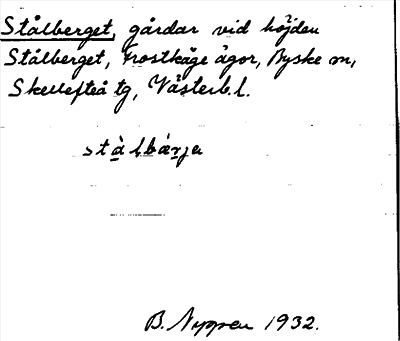 Stålberget, gårdar vid höjden
Stålberget, Frostkåge ägor, Byske sn,
Skellefteå tg, Västerb. l.
stàlbárjə
B. Nygren 1932.